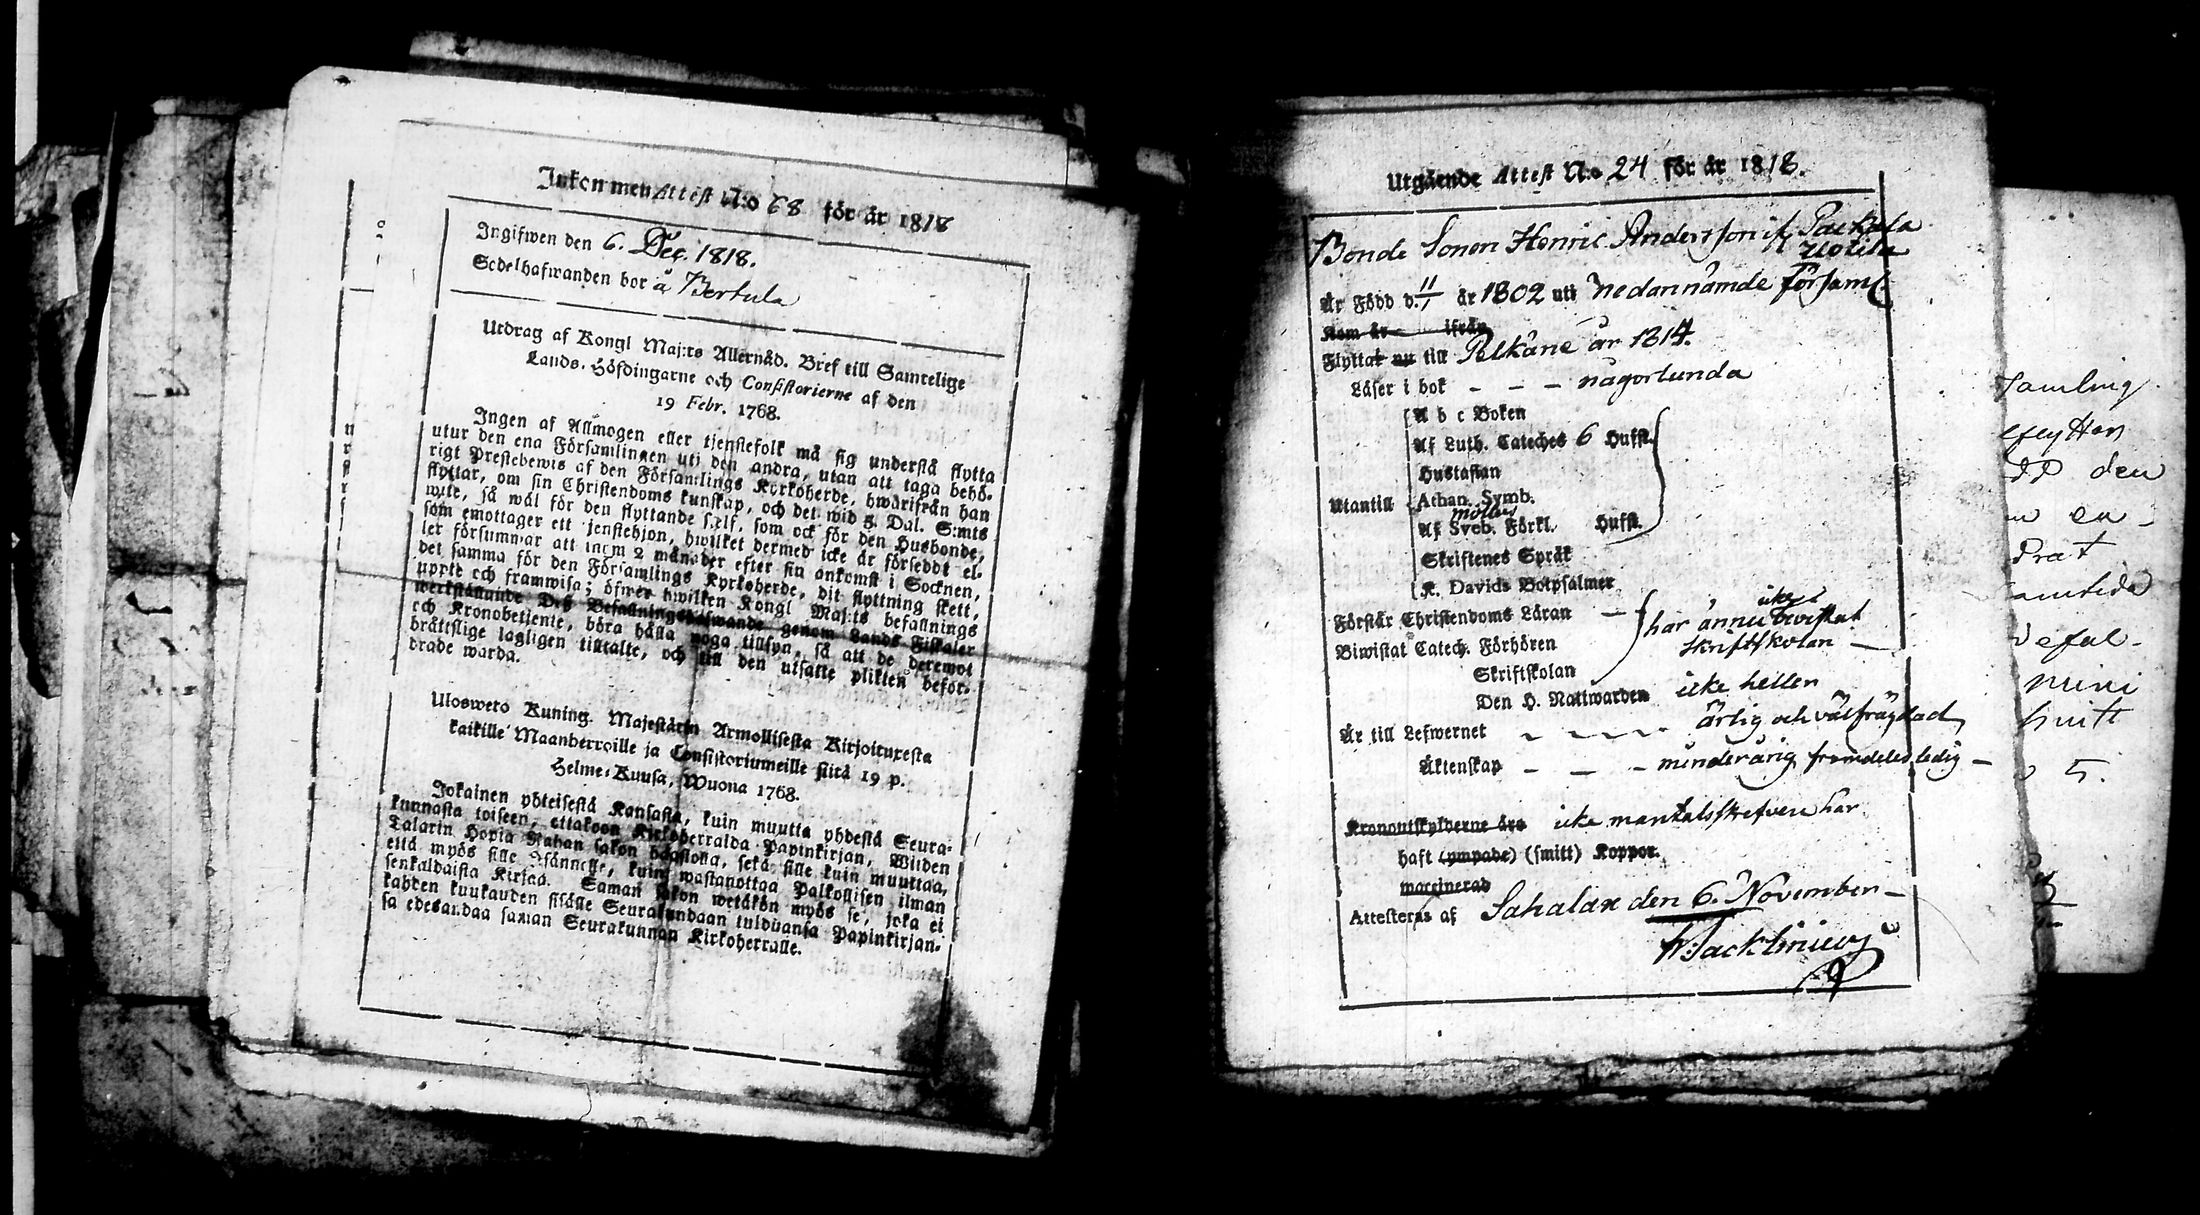 Inkommen Attest N:o 68 för år 1818
Ingifwen den 6. Dec. 1818.
Sedelhafwanden bor å Bertula
Utdrag af Kongl Maj:ts Allernåd. Bref till Samtelige
Lands-Höfdingarne och Consistorierne af den
19 Febr. 1768.
Ingen af Allmogen eller tjenstefolk må sig understå flytta
utur den ena Församlingen uti den andra, utan att taga behö-
rigt Prestebewis af den Församlings Kyrkoherde, hwarifrån han
flyttar, om sin Christendoms kunskap, och det wid 3. Dal. S:mts
wite, så wäl för den flyttande self, som ock för den Husbonde,
som emottager ett tjenstehjon, hwilket dermed icke är försedt el-
ler försummar att inom 2 månader efter sin ankomst i Socknen,
det samma för den Församlings Kyrkoherde, dit flyttning skett,
uppte och framwisa; öfwer hwilken Kongl Maj:ts befallnings
werkställande Deß Befallningshafwande genom Lands Fiskaler
och Kronobetjente, böra hålla noga tillsyn, så att de deremot
bråttslige lagligen tilltalte, och till den utsatte plikten befor-
drade warda.
Ulosweto Kuning. Majestätin Armollisesta Kirjoituxesta
kaikille Maanherroille ja Consistoriumeille siitä 19 p.
Helme-Kuusa, Wuona 1768.
Jokainen yhteisestä Kansasta, kuin muutta yhdestä Seura-
kunnasta toiseen, ottakoon Kirkoherralda Papinkirjan, Wiiden
Talarin Hopia Rahan sakon haastolla, sekä sille kuin muuttaa,
että myös sille Isännelle, kuin wastanottaa Palkollisen ilman
senkaldaista Kirjaa. Saman sakon wetäkön myös se, joka ei
kahden kuukauden sisälle Seurakundaan tulduansa Papinkirjan-
sa edesandaa saman Seurakunnan Kirkoherralle.
Utgående Attest N:o 24 för år 1818.
Bonde Sonen Henric Andersson if. Packala
Uotila
Är Född d. 11/1 år 1802 uti nedannämde Församl.
Kom år ifrån
Flyttat nu till Pelkäne år 1814.
Läser i bok - - - någorlunda
A b c Boken
Af Luth. Cateches 6 Hufst.
Hustaflan
Utantill Athan. Symb.
Af Sveb. Förkl. Hufst.
Skriftenes Språk
K. Davids Botpsalmer
Förstår Christendoms Läran
icke
har ännu bevistat
Biwistat Catech. Förhören
skriftskolan
Skriftskolan
Den H. Nattwarden icke heller
Är till Lefwernet - - - - ärlig och välfrägdad
Äktenskap - - - minderårig framdeles ledig -
Kronoutskylderne äro icke mantalsskrefven har
haft (ympade) (smitt) Koppor.
waccinerad
Attesteras af Sahalax den 6. November
samling
den